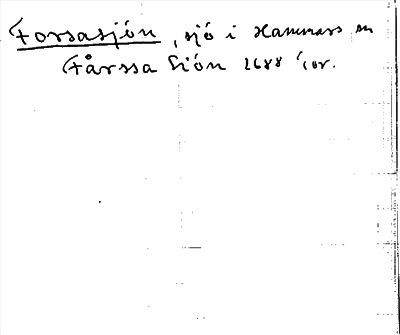 Forsasjön, sjö i Hammars sn
Fårssa Siön 1688